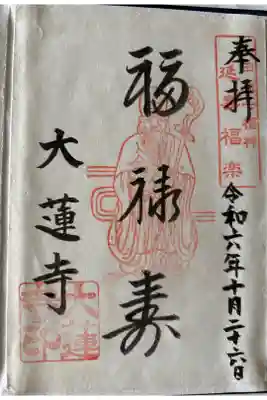 奉拝
令和六年十月二十六日
延寿福楽
福禄寿
大蓮寺
大蓮
寺印